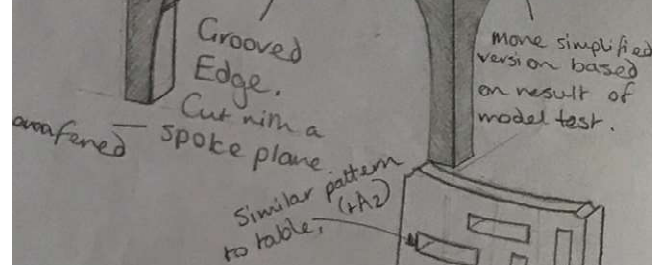 Grooved
Edge.
Cut with a
spoke plane
more simplified
version based
on result of
model test.
Similar pattern
to table,